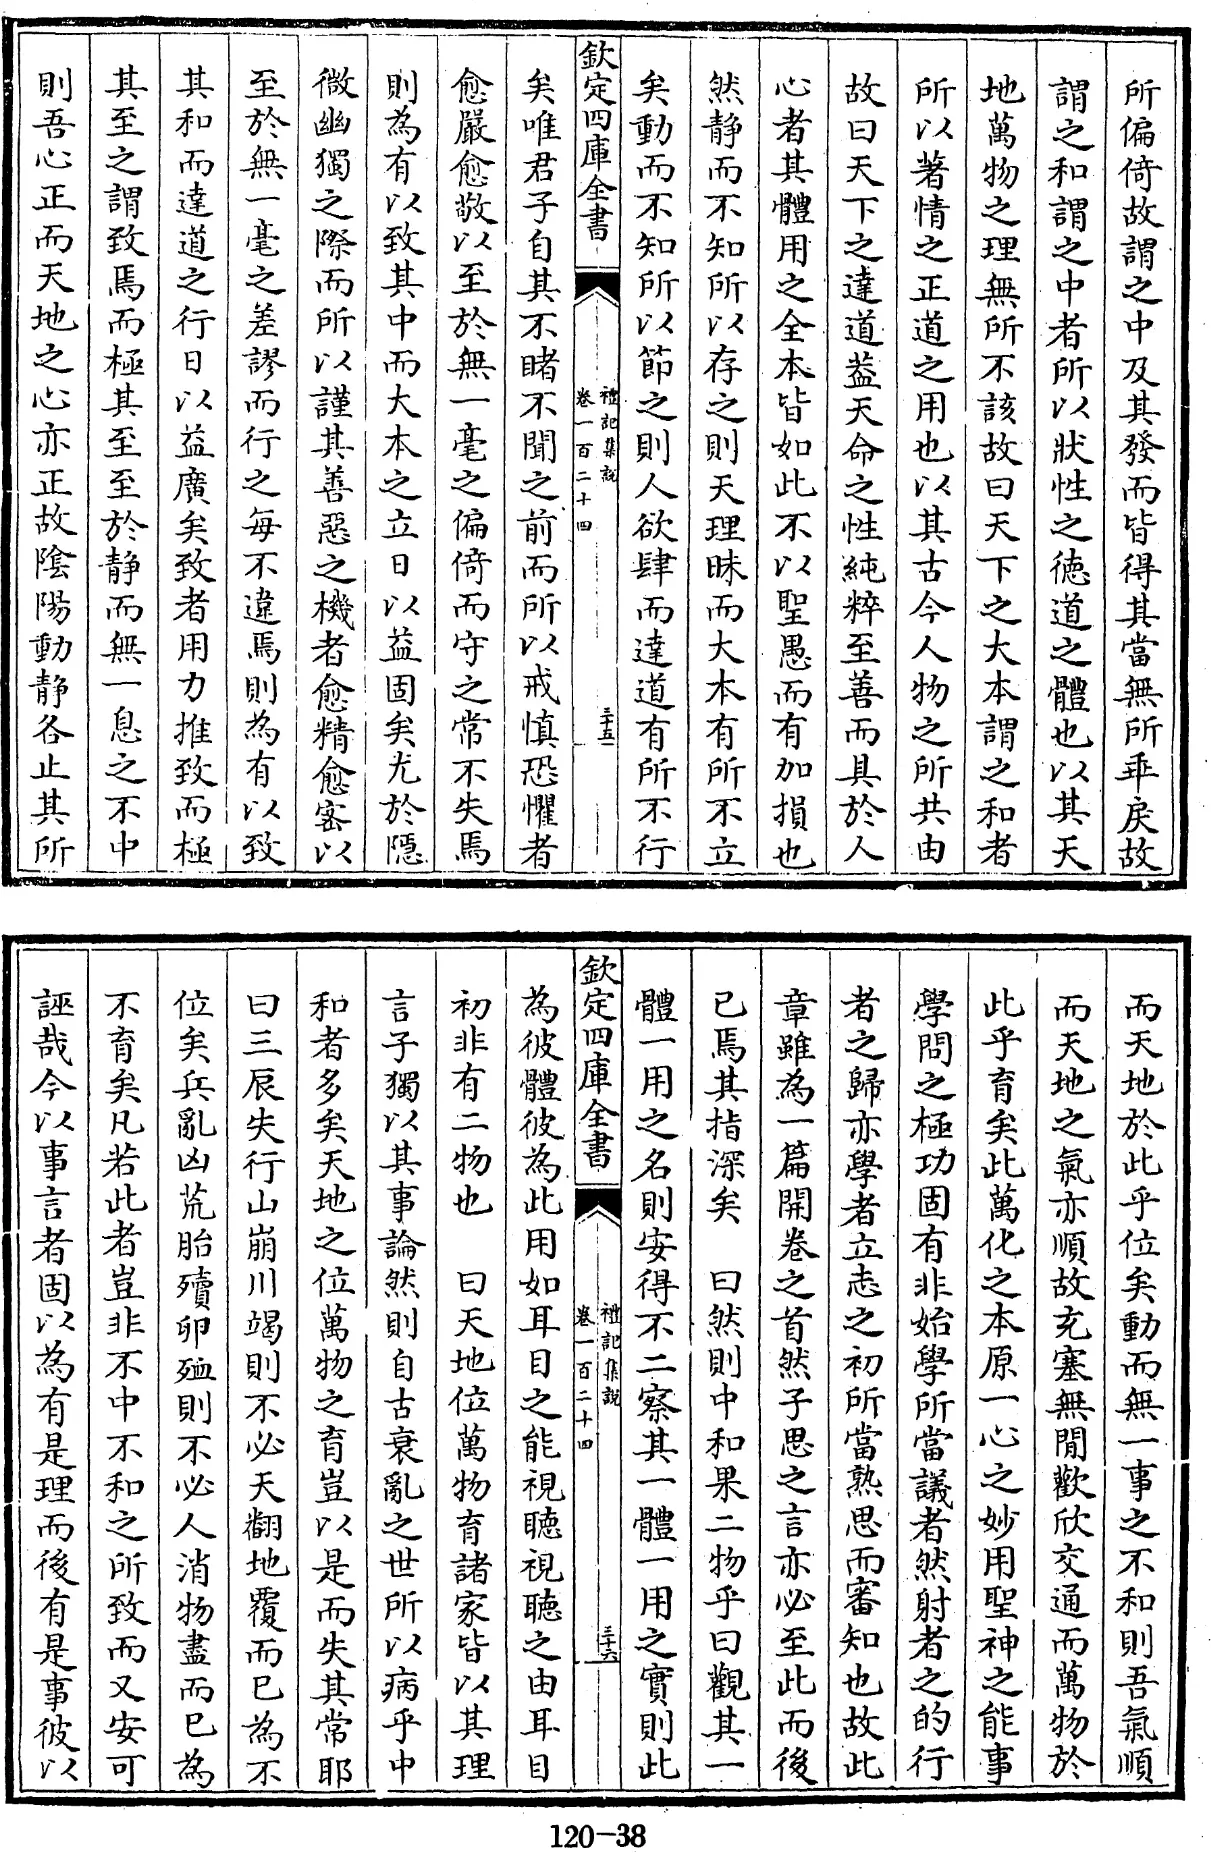 所偏倚故謂之中及其發而皆得其當無所乖戾故
謂之和謂之中者所以狀性之德道之體也以其天
地萬物之理無所不該故曰天下之大本謂之和者
所以著情之正道之用也以其古今人物之所共由
故曰天下之達道蓋天命之性純粹至善而具於人
心者其體用之全本皆如此不以聖愚而有加損也
然靜而不知所以存之則天理昧而大本有所不立
矣動而不知所以節之則人欲肆而達道有所不行
欽定四庫全書
禮記集說
卷一百二十四
三十五
矣唯君子自其不睹不聞之前而所以戒慎恐懼者
愈嚴愈敬以至於無一毫之偏倚而守之常不失焉
則為有以致其中而大本之立日以益固矣尤於隱
微幽獨之際而所以謹其善惡之機者愈精愈密以
至於無一毫之差謬而行之每不違焉則為有以致
其和而達道之行日以益廣矣致者用力推致而極
其至之謂致焉而極其至至於靜而無一息之不中
則吾心正而天地之心亦正故陰陽動靜各止其所
而天地於此乎位矣動而無一事之不和則吾氣順
而天地之氣亦順故充塞無間歡欣交通而萬物於
此乎育矣此萬化之本原一心之妙用聖神之能事
學問之極功固有非始學所當議者然射者之的行
者之歸亦學者立志之初所當熟思而審知也故此
章雖為一篇開卷之首然子思之言亦必至此而後
已焉其指深矣　曰然則中和果二物乎曰觀其一
體一用之名則安得不二察其一體一用之實則此
欽定四庫全書
禮記集說
卷一百二十四
三十六
為彼體彼為此用如耳目之能視聽視聽之由耳目
初非有二物也　曰天地位萬物育諸家皆以其理
言子獨以其事論然則自古衰亂之世所以病乎中
和者多矣天地之位萬物之育豈以是而失其常耶
曰三辰失行山崩川竭則不必天翻地覆而已為不
位矣兵亂凶荒胎殰卵殈則不必人消物盡而已為
不育矣凡若此者豈非不中不和之所致而又安可
誣哉今以事言者固以為有是理而後有是事彼以
120-38